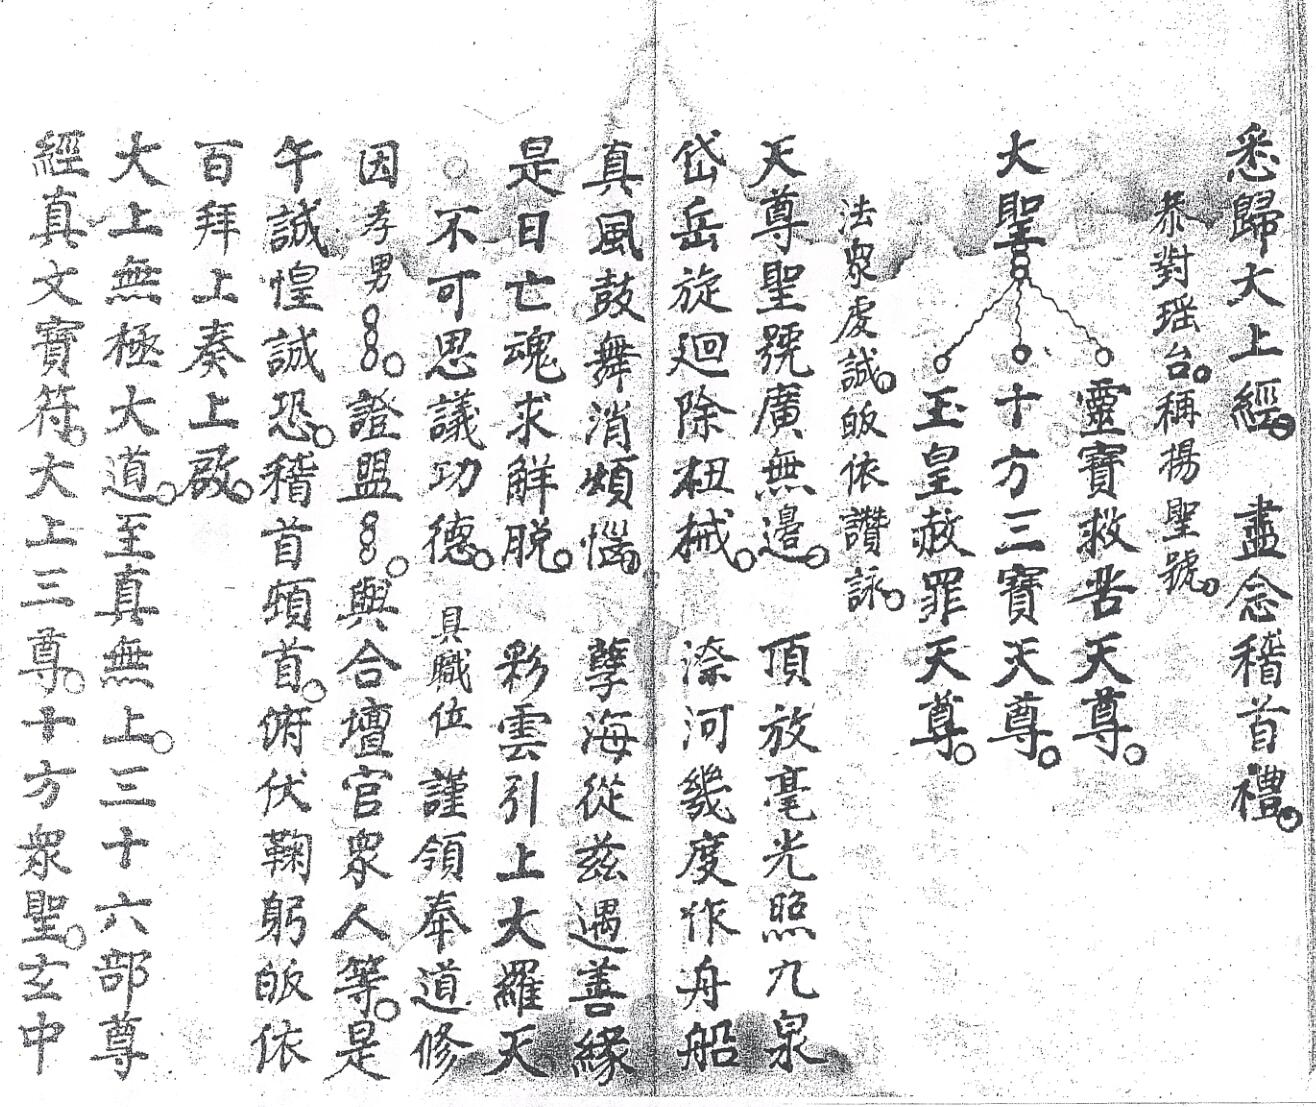 悉歸大上經。盡念稽首禮。
恭對瑶台。稱揚聖號。
大聖
靈寶救苦天尊。
十方三寶天尊。
玉皇赦罪天尊。
法衆虔誠。皈依讚詠。
天尊聖號廣無邊。頂放毫光照九泉
岱岳旋迴除杻械。漈河幾度作舟船
真風鼓舞消煩惱。孽海從兹遇善緣
是日亡魂求解脱。彩雲引上大羅天
不可思議功德。具職位謹領奉道修
因孝男。證盟。與合壇官衆人等。是
午誠惶誠恐。稽首頓首。俯伏鞠躬皈依
百拜上奏上啟。
大上無極大道。至真無上。三十六部尊
經真文寶符。大上三尊。十方衆聖。玄中